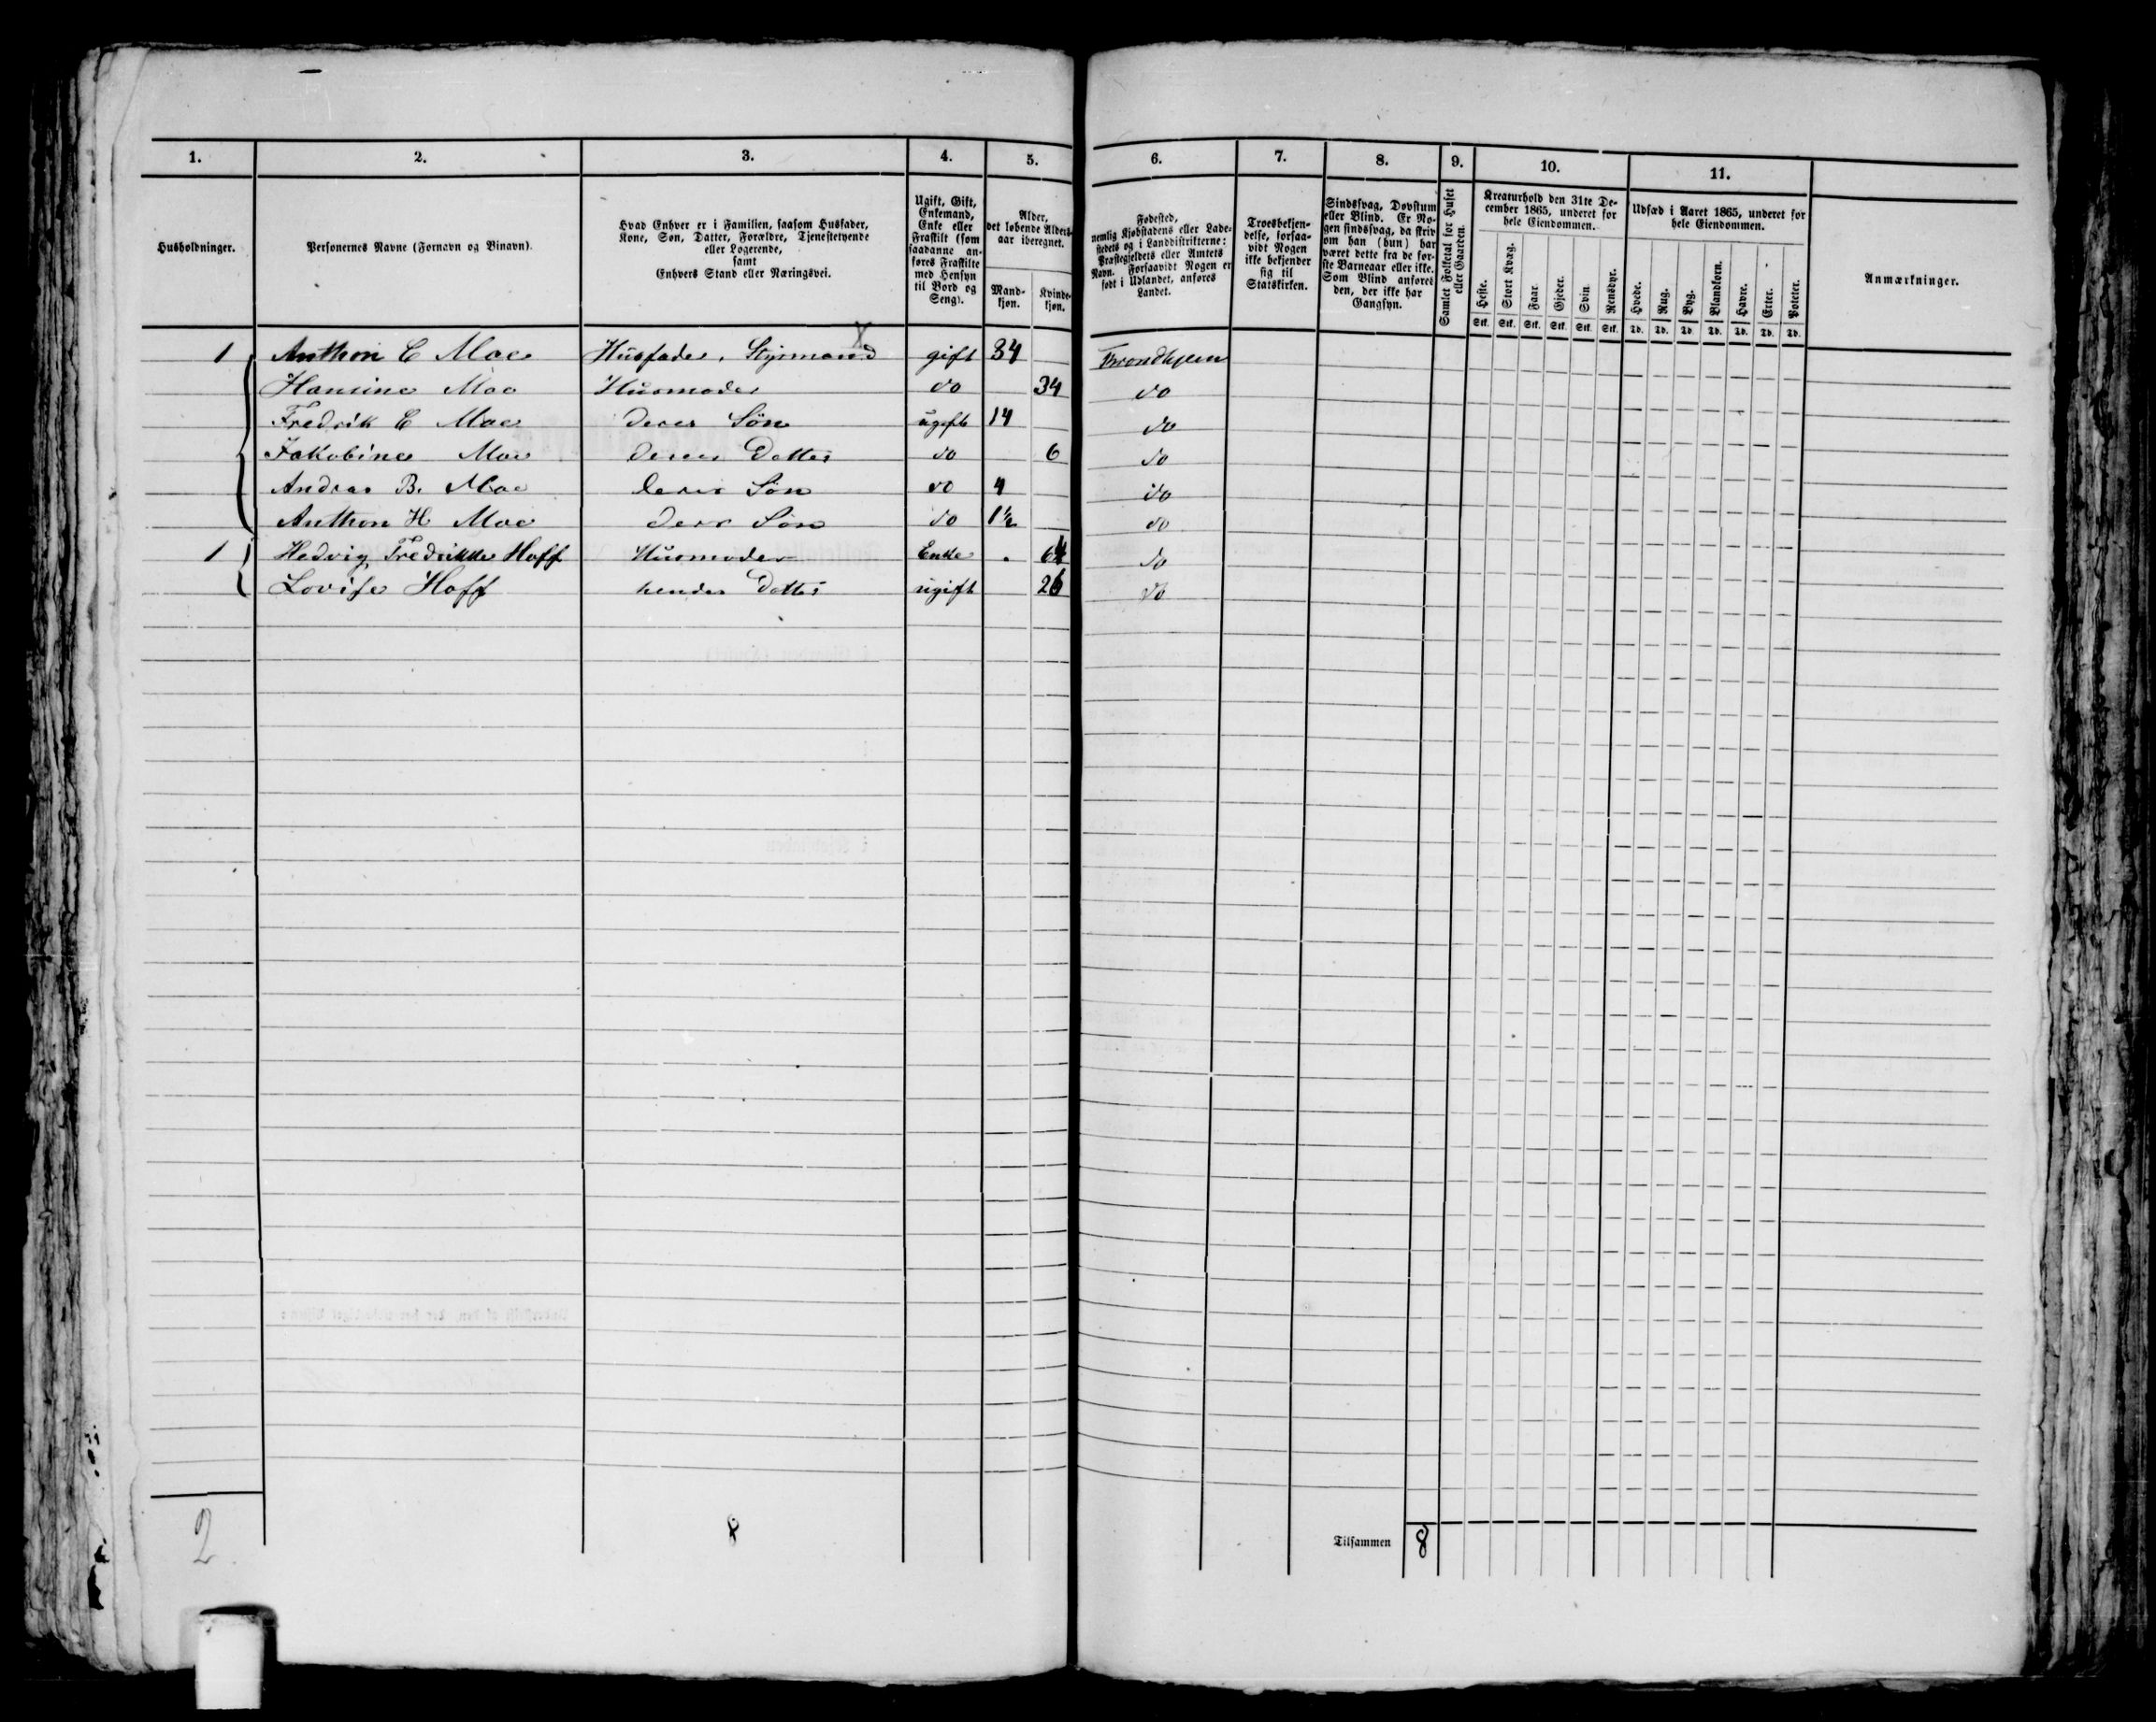 1. 2. 3. 4. 5. 6. 7. 8. 9. 10. 11.
Husholdninger.
Personernes Navne (Fornavn og Binavn).
Hvad Enhver er i Familien, saasom Husfader,
Kone, Søn, Datter, Forældre, Tjenestetyende
eller Logerende,
samt
Enhvers Stand eller Næringsvei.
Ugift, Gift,
Enkemand,
Enke eller
Fraskilt (som
saadanne an-
føres Fraskilte
med Hensyn
til Bord og
Seng).
Alder,
det løbende Alders-
aar iberegnet.
Mand-
kjøn.
Kvinde-
kjøn.
Fødested,
nemlig Kjøbstadens eller Lade-
stedets og i Landdistrikterne:
Præstegjeldets eller Amtets
Navn. Forsaavidt Nogen er
født i Udlandet, anføres
Landet.
Troesbekjen-
delse, forsaa-
vidt Nogen
ikke bekjender
sig til
Statskirken.
Sindssvag, Døvstum
eller Blind. Er No-
gen sindssvag, da skriv
om han (hun) har
været dette fra de før-
ste Barneaar eller ikke.
Som Blind anføres
den, der ikke har
Gangsyn.
Samlet Folketal for Huset
eller Gaarden.
Kreaturhold den 31te De-
cember 1865, underet for
hele Eiendommen.
Heste. Stort Kvæg. Faar. Gjeder. Svin. Rensdyr.
Stk. Stk. Stk. Stk. Stk. Stk.
Udsæd i Aaret 1865, underet for
hele Eiendommen.
Hvede. Rug. Byg. Blandkorn. Havre. Erter. Poteter.
Td. Td. Td. Td. Td. Td. Td.
Anmærkninger.
1 Anthon C Moe Husfader, Styrmand gift 34 Trondhjem
Hansine Moe Husmoder do 34 do
Fredrik C Moe deres Søn ugift 14 do
Jakobine Moe deres Datter do 6 do
Andreas B. Moe deres Søn do 4 do
Anthon H Moe deres Søn do 1½ do
1 Hedvig Fredrikke Hoff Husmoder Enke 64 do
Lovise Hoff hendes Datter ugift 26 do
2 8 Tilsammen 8